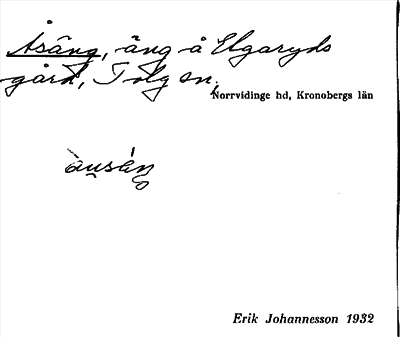 Åsäng, äng å Elgaryds
gård, Tolg sn,
Norrvidinge hd, Kronobergs län
Erik Johannesson 1932